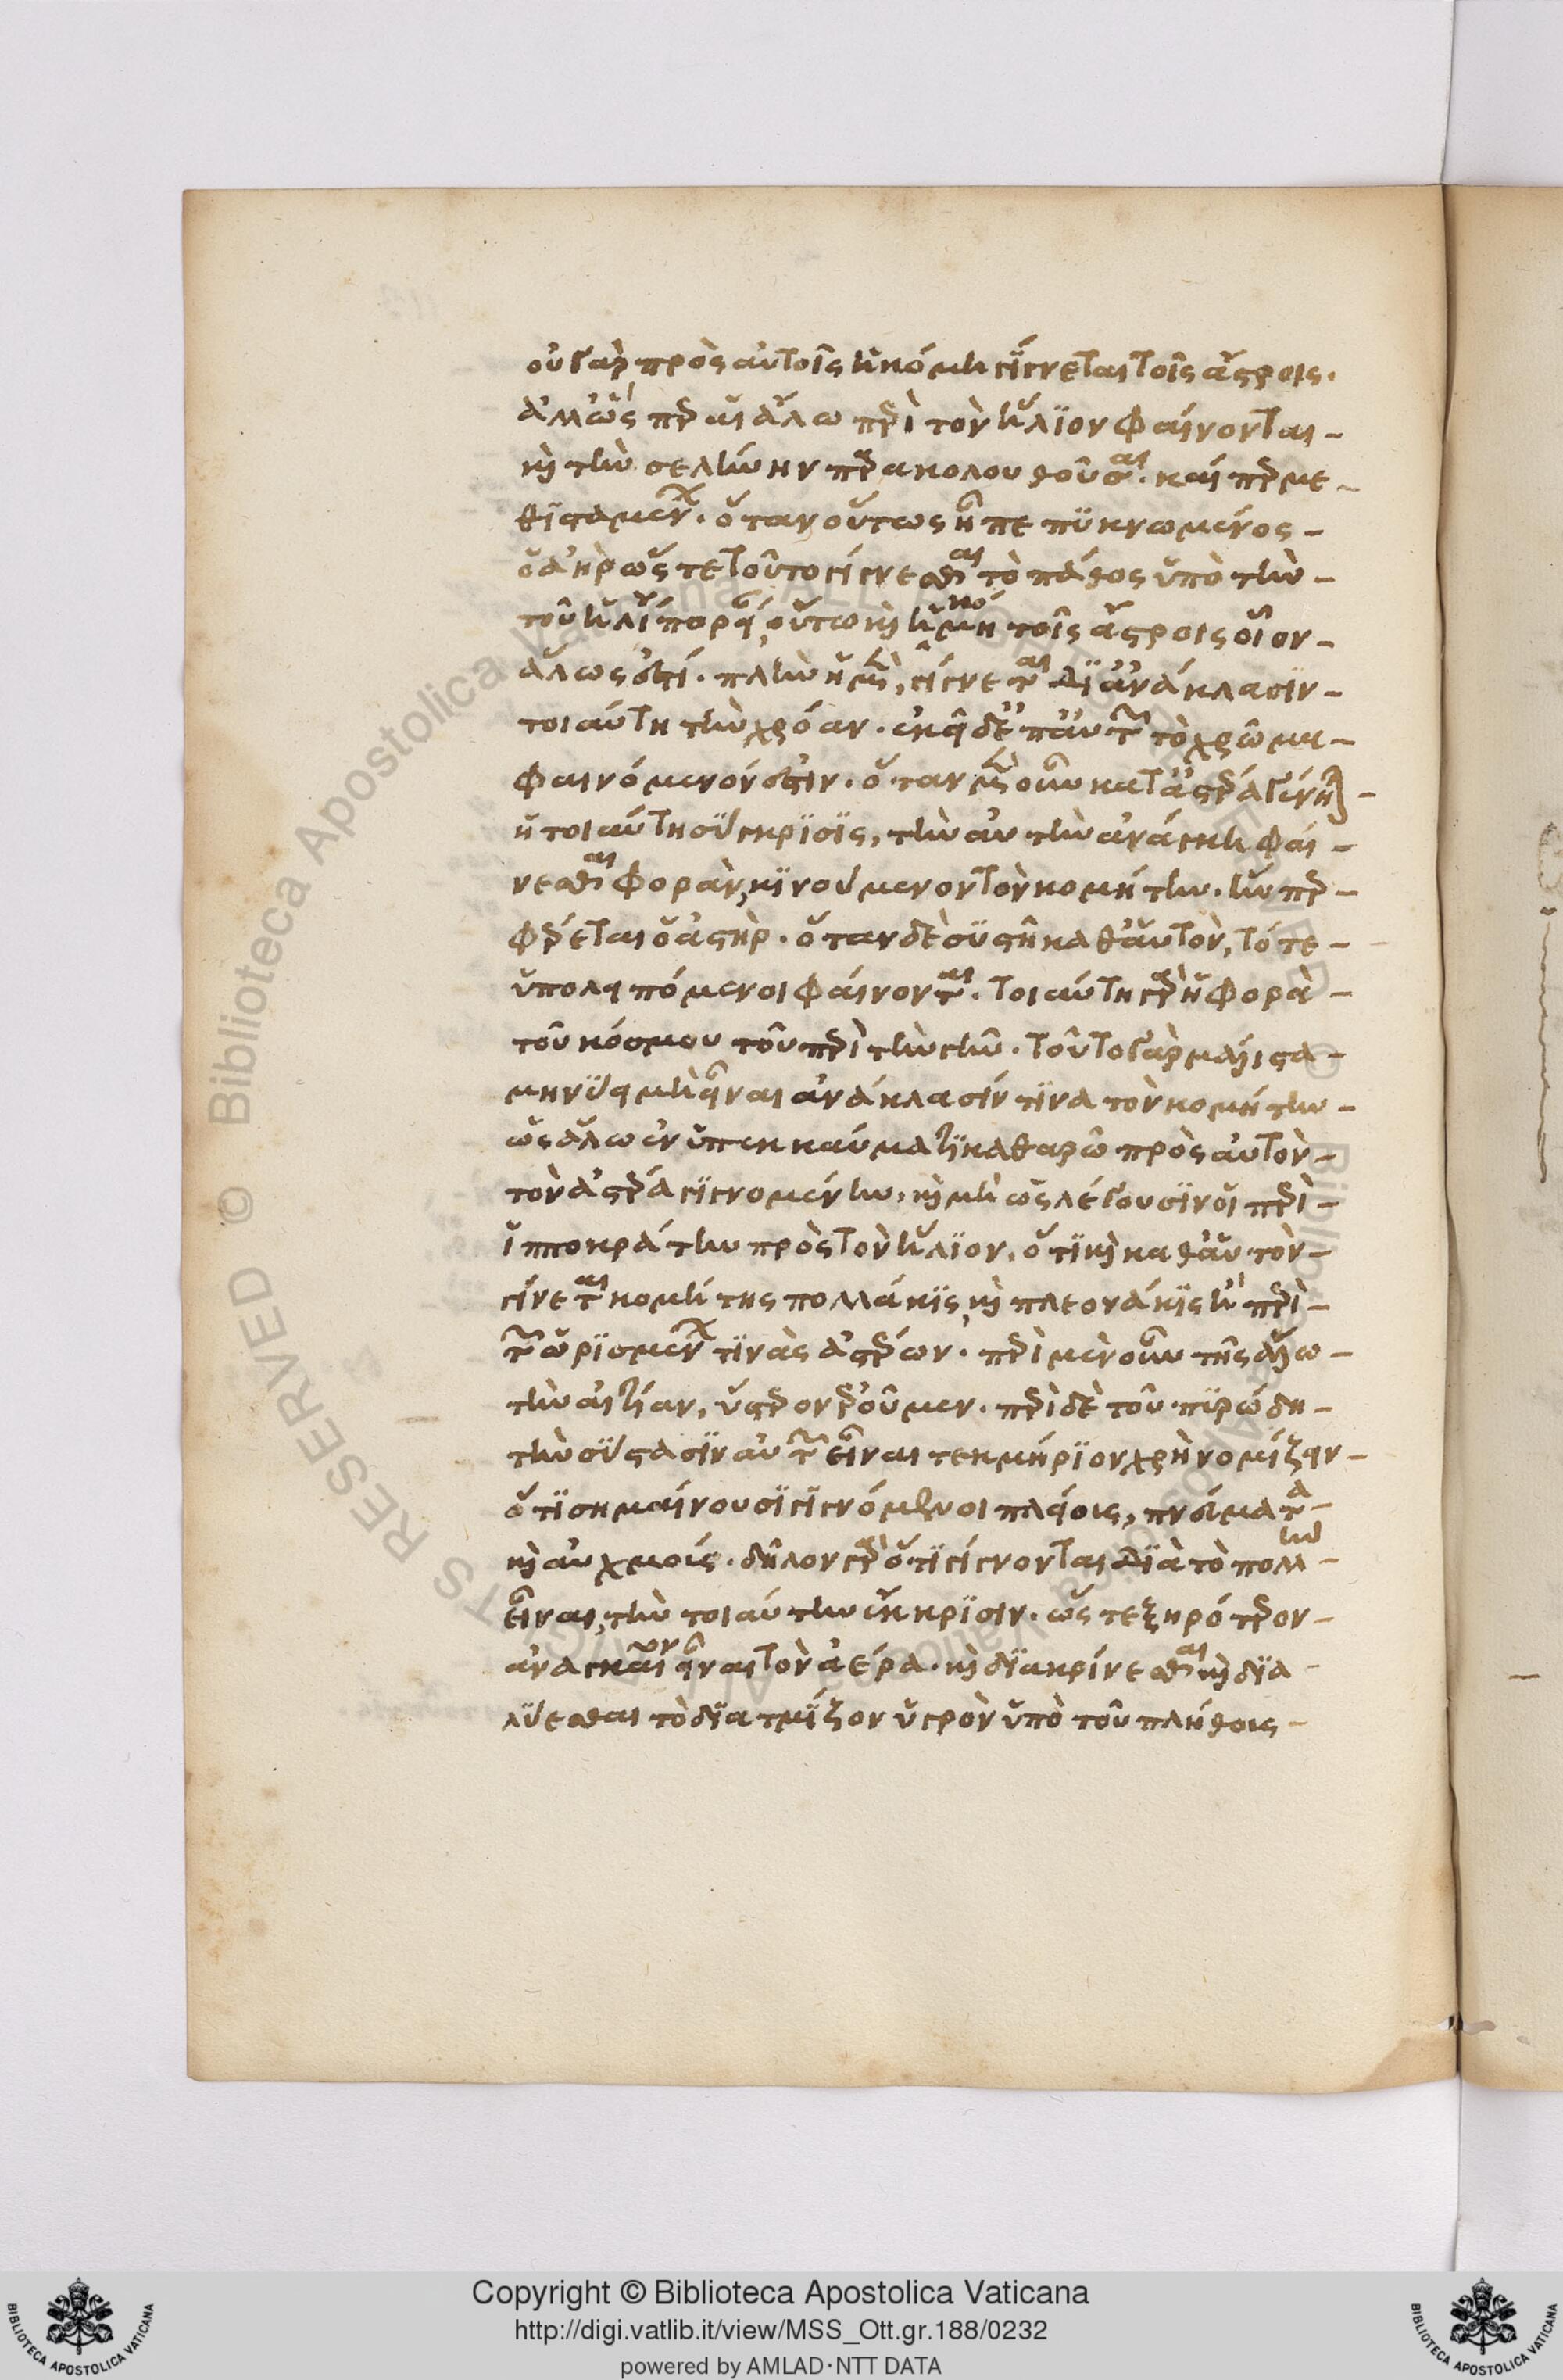 οὐ γὰρ πρὸς αὐτοῖς ἡ κόμη γίγνεται τοῖς ἄστροις.
ἀλλ' ὥσπερ αἱ ἅλω περὶ τὸν ἥλιον φαίνονται
καὶ τὴν σελήνην παρακολουθοῦσαι. καίπερ με
θισταμένων. ὅταν οὕτως ᾖ πεπυκνωμένος
ὁ ἀὴρ ὥστε τοῦτο γίγνεσθαι τὸ πάθος ὑπὸ τὴν
τοῦ ἡλίου πορείαν, οὕτω καὶ ἡ κόμη τοῖς ἄστροις οἷον
ἅλως ἐστί. πλὴν ἡ μὲν, γίγνεται δι' ἀνάκλασιν
τοιαύτη τὴν χρόαν. ἐκεῖ δ' ἐπ' αὐτῶν τὸ χρῶμα
φαινόμενόν ἐστιν. ὅταν μὲν οὖν κατ' ἀστέρα γένηται
ἡ τοιαύτη σύγκρισις, τὴν αὐτὴν ἀνάγκη φαί
νεσθαι φορὰν, κινούμενον τὸν κομήτην. ἣν περ
φέρεται ὁ ἀστήρ. ὅταν δὲ συστῇ καθ' αὑτὸν, τότε
ὑπολειπόμενοι φαίνονται. τοιαύτη γὰρ ἡ φορὰ
τοῦ κόσμου τοῦ περὶ τὴν γῆν. τοῦτο γὰρ μάλιστα
μηνύει μὴ εἶναι ἀνάκλασίν τινα τὸν κομήτην
ὡς ἅλω ἐν ὑπεκκαύματι καθαρῷ πρὸς αὐτὸν
τὸν ἀστέρα γιγνομένην. καὶ μὴ ὡς λέγουσιν οἱ περὶ
ἱπποκράτην πρὸς τὸν ἥλιον, ὅτι καὶ καθ' αὑτὸν
γίνεται κομήτης πολλάκις, καὶ πλεονάκις ἢ περὶ
τῶν ὡρισμένων τινὰς ἀστέρων. περὶ μὲν οὖν τῆς ἅλω
τὴν αἰτίαν, ὕστερον ἐροῦμεν. περὶ δὲ τοῦ πυρώδη
τὴν σύστασιν αὐτῶν εἶναι τεκμήριον χρὴ νομίζειν
ὅτι σημαίνουσι γιγνόμενοι πλείους, πνεύματα
καὶ αὐχμούς. δῆλον γὰρ ὅτι γίγνονται διὰ τὸ πολλὴν
εἶναι, τὴν τοιαύτην ἔκκρισιν. ὥστε ξηρότερον
ἀναγκαῖον εἶναι τὸν ἀέρα. καὶ διακρίνεσθαι καὶ δια
λύεσθαι τὸ διατμίζον ὑγρὸν ὑπὸ τοῦ πλήθους
Copyright © Biblioteca Apostolica Vaticana
http://digi.vatlib.it/view/MSS_Ott.gr.188/0232
powered by AMLAD·NTT DATA